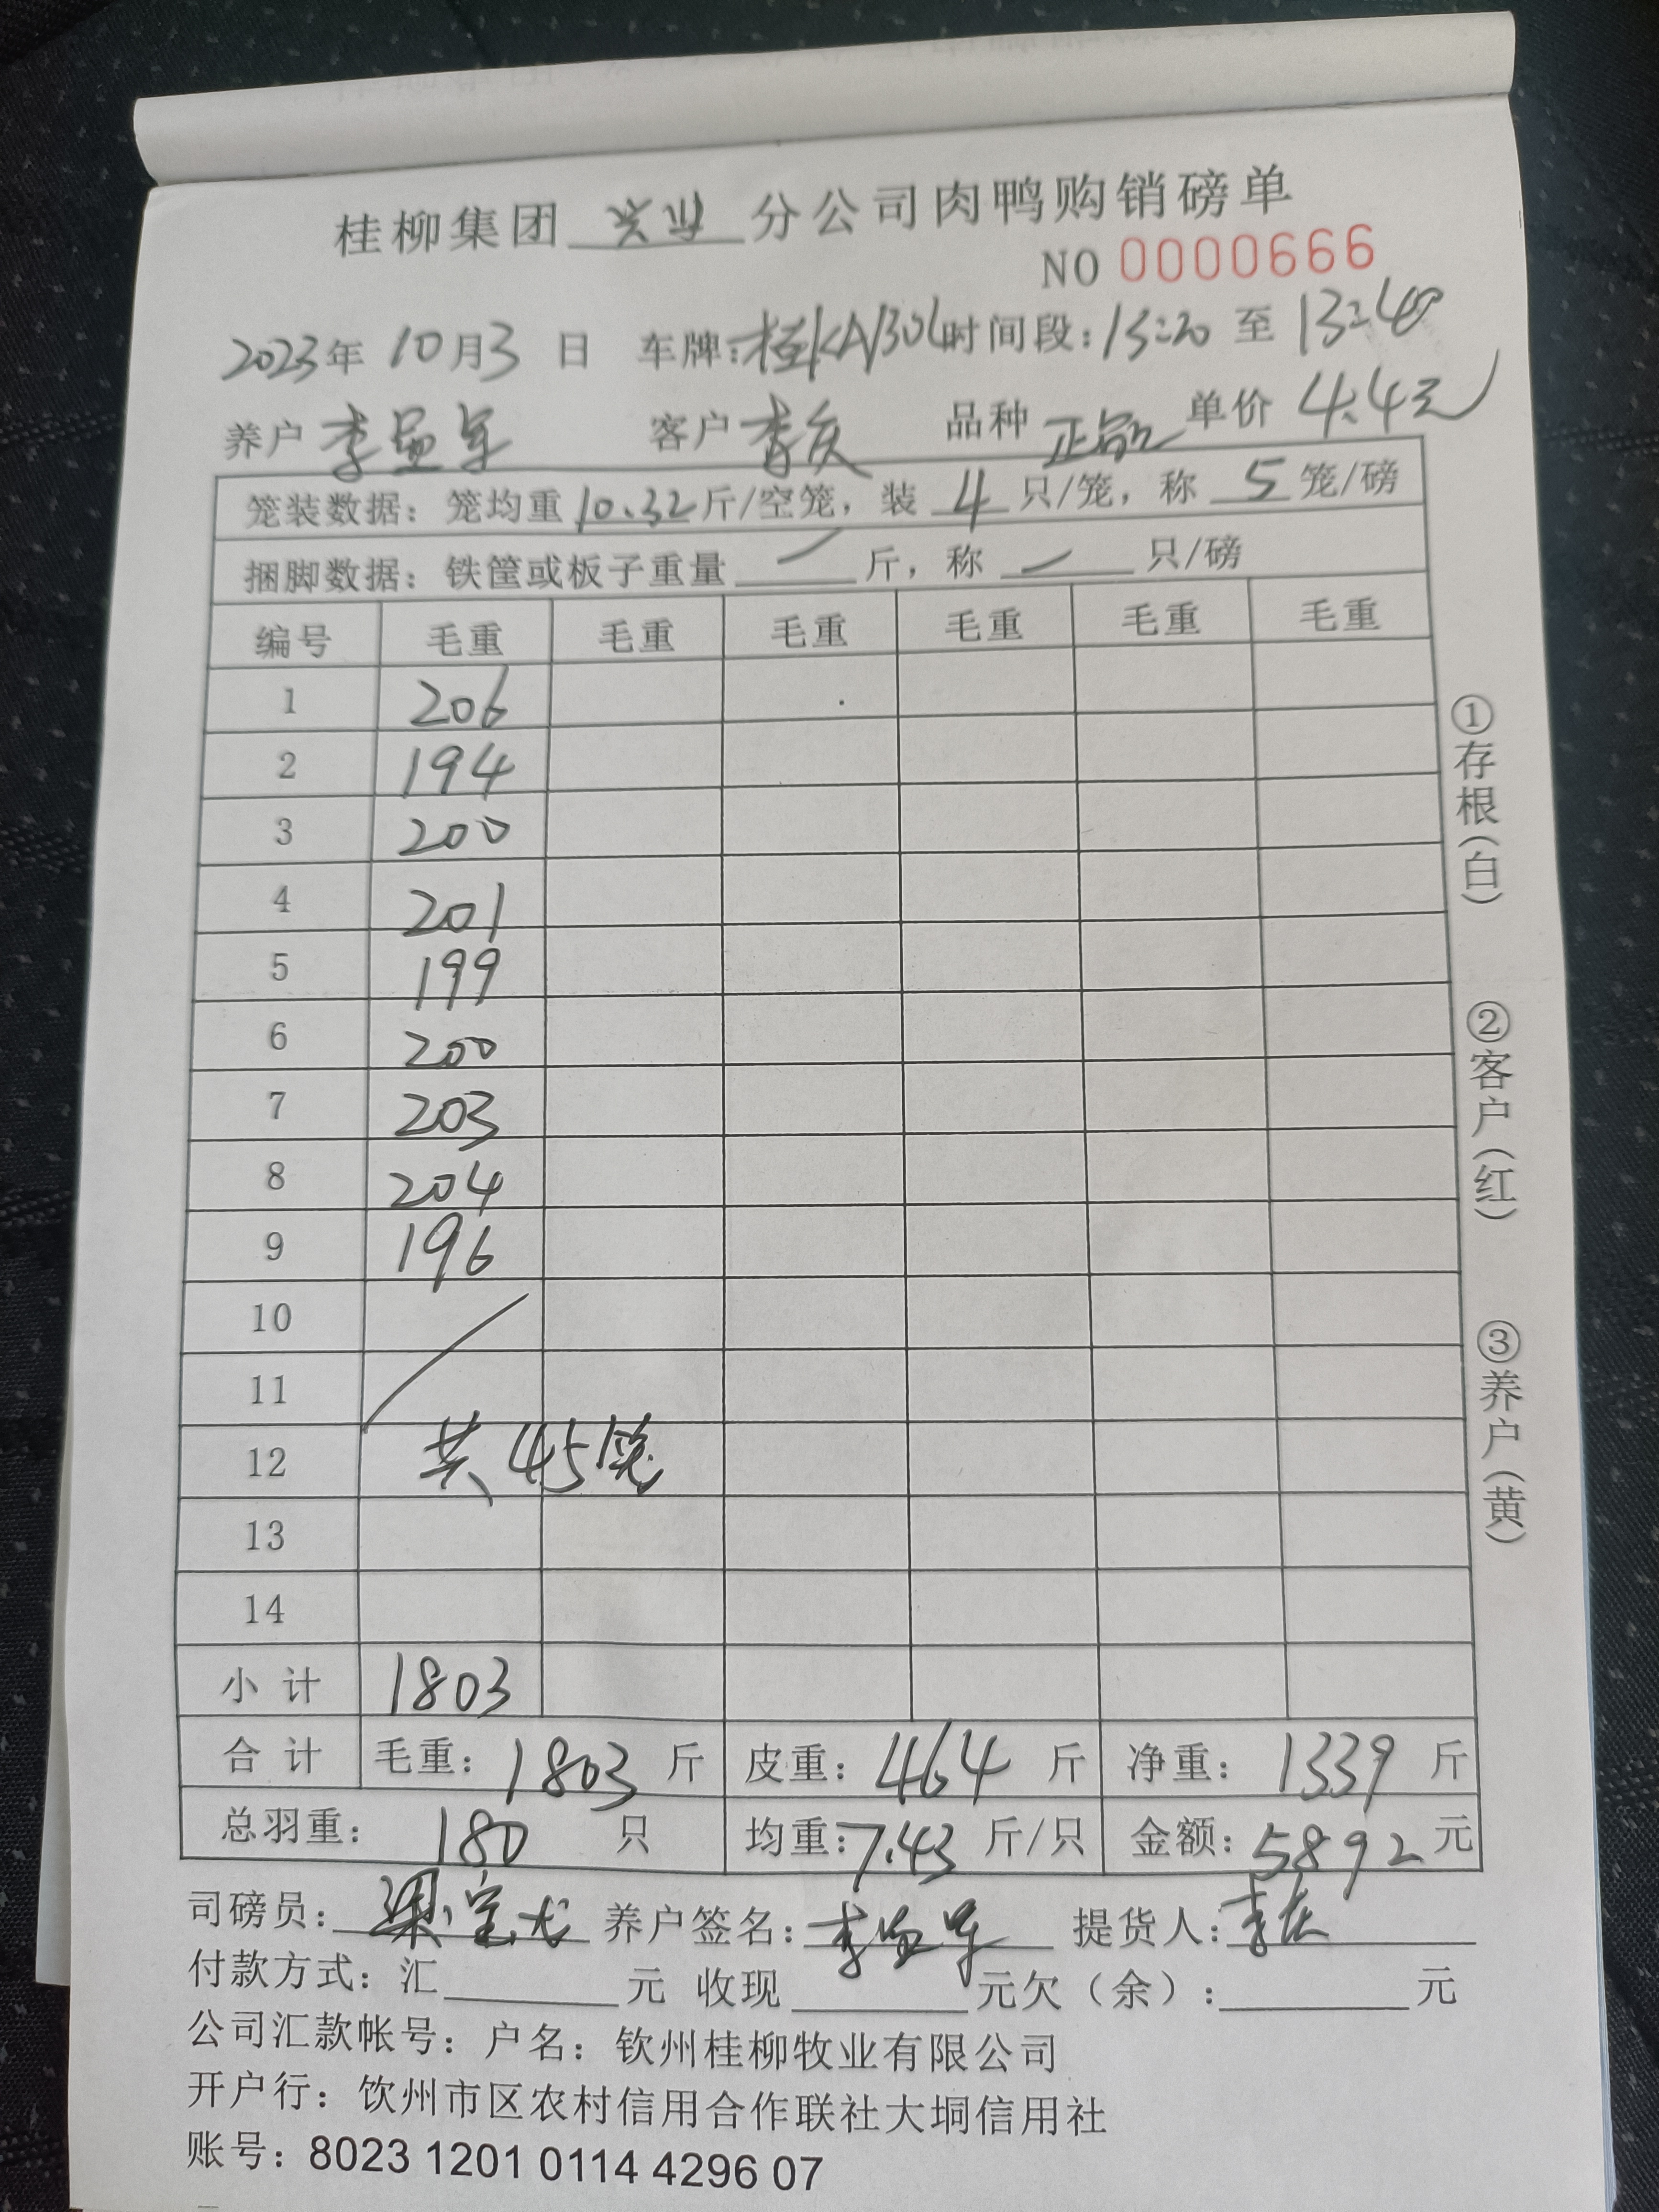 桂柳集团 兴业 分公司肉鸭购销磅单
NO 0000666
2023年 10月3 日 车牌:桂KA 时间段:13:20 至 13:40
养户 李 军 客户 李庆 品种 正品 单价 4.4元
笼装数据:笼均重 10.32 斤/空笼,装 4 只/笼,称 5 笼/磅
捆脚数据:铁筐或板子重量 / 斤,称 / 只/磅
编号 毛重 毛重 毛重 毛重 毛重 毛重
1 206
2 194
3 200
4 201
5 199
6 200
7 203
8 204
9 196
10
11
12 共45笼
13
14
小 计 1803
合 计 毛重:1803 斤 皮重:464 斤 净重:1339 斤
总羽重:180 只 均重:7.43 斤/只 金额:5892 元
司磅员:梁宝龙 养户签名:李 军 提货人:李庆
付款方式:汇 元 收现 元欠(余): 元
公司汇款帐号:户名:钦州桂柳牧业有限公司
开户行:钦州市区农村信用合作联社大垌信用社
账号:8023 1201 0114 4296 07
①存根(白)
②客户(红)
③养户(黄)